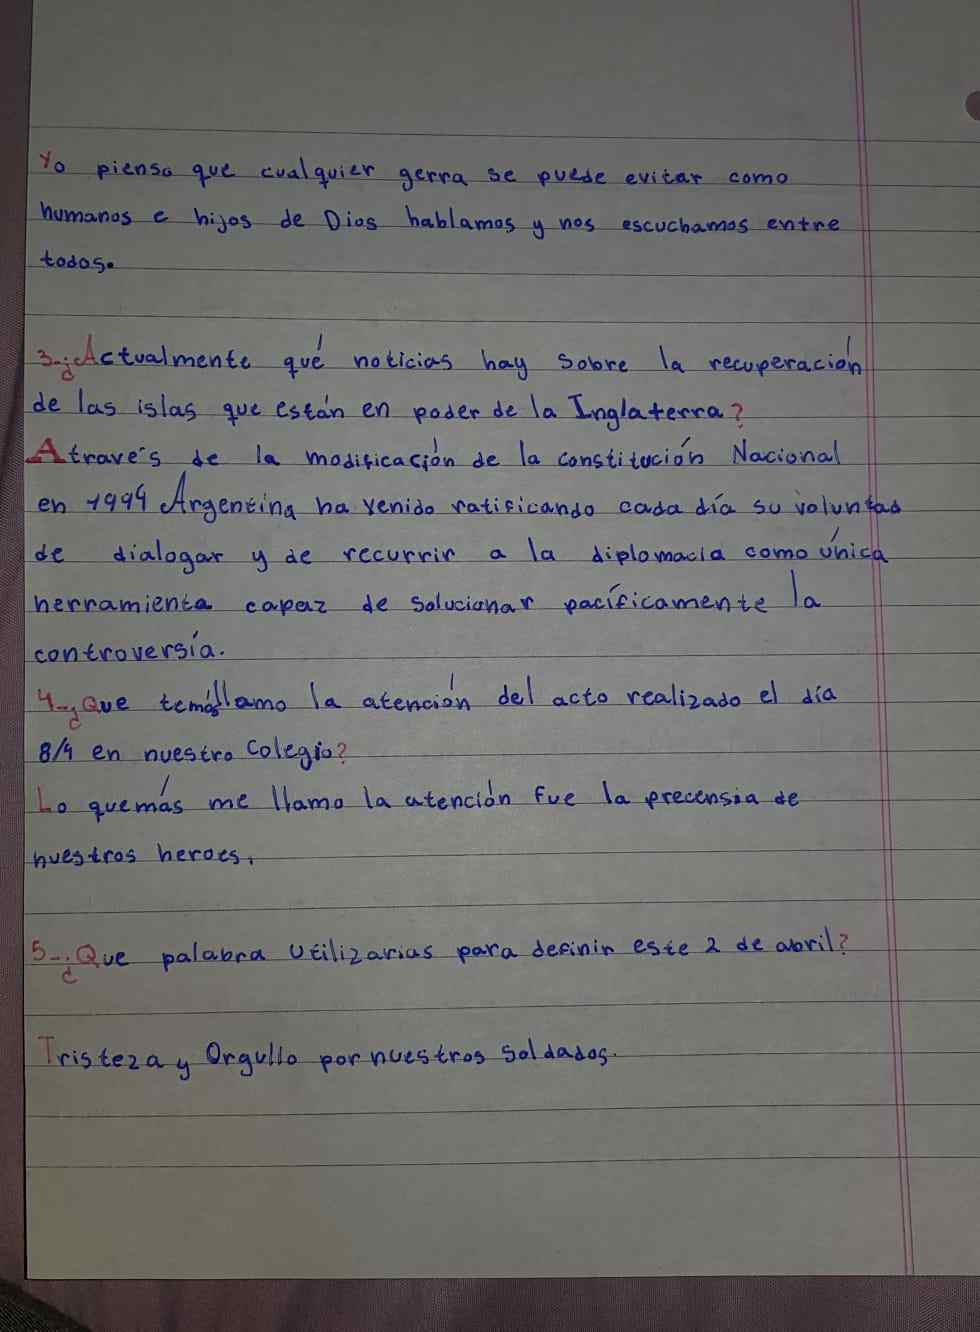 Yo pienso que cualquier gerra se puede evitar como
humanos e hijos de Dios hablamos y nos escuchamos entre
todos.
3-¿Actualmente qué noticias hay sobre la recuperación
de las islas que están en poder de la Inglaterra?
Através de la modificación de la constitución Nacional
en 1994 Argentina ha venido ratificando cada día su voluntad
de dialogar y de recurrir a la diplomacia como única
herramienta capaz de solucionar pacíficamente la
controversía.
4-¿Que temásllamo la atención del acto realizado el día
8/4 en nuestro Colegio?
Lo quemás me llamo la atención fue la precensia de
nuestros heroes.
5-¿Que palabra utilizarias para definir este 2 de abril?
Tristeza y Orgullo por nuestros soldados.